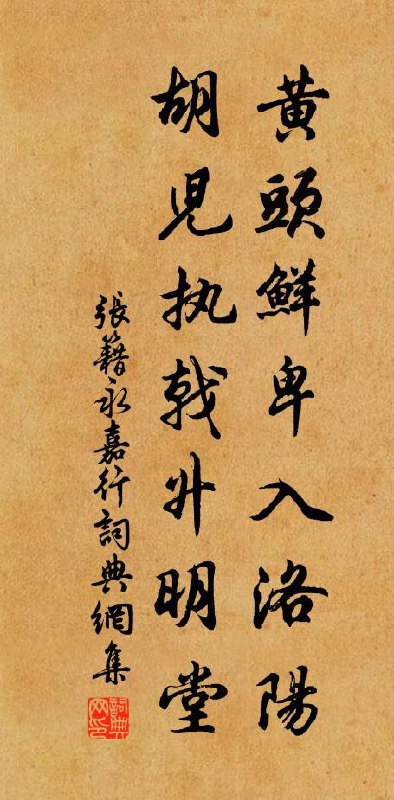 黄頭鮮卑入洛陽
胡児执戟升明堂
張籍永嘉行詞典網集
詞典網印